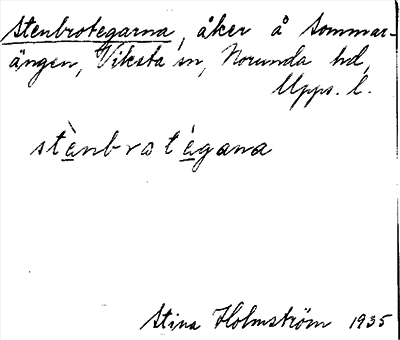 Stenbrotegarna, åker å Sommar-
ängen, Viksta sn, Norunda hd,
Upps. l.
stènbrotégana
Stina Holmström 1935